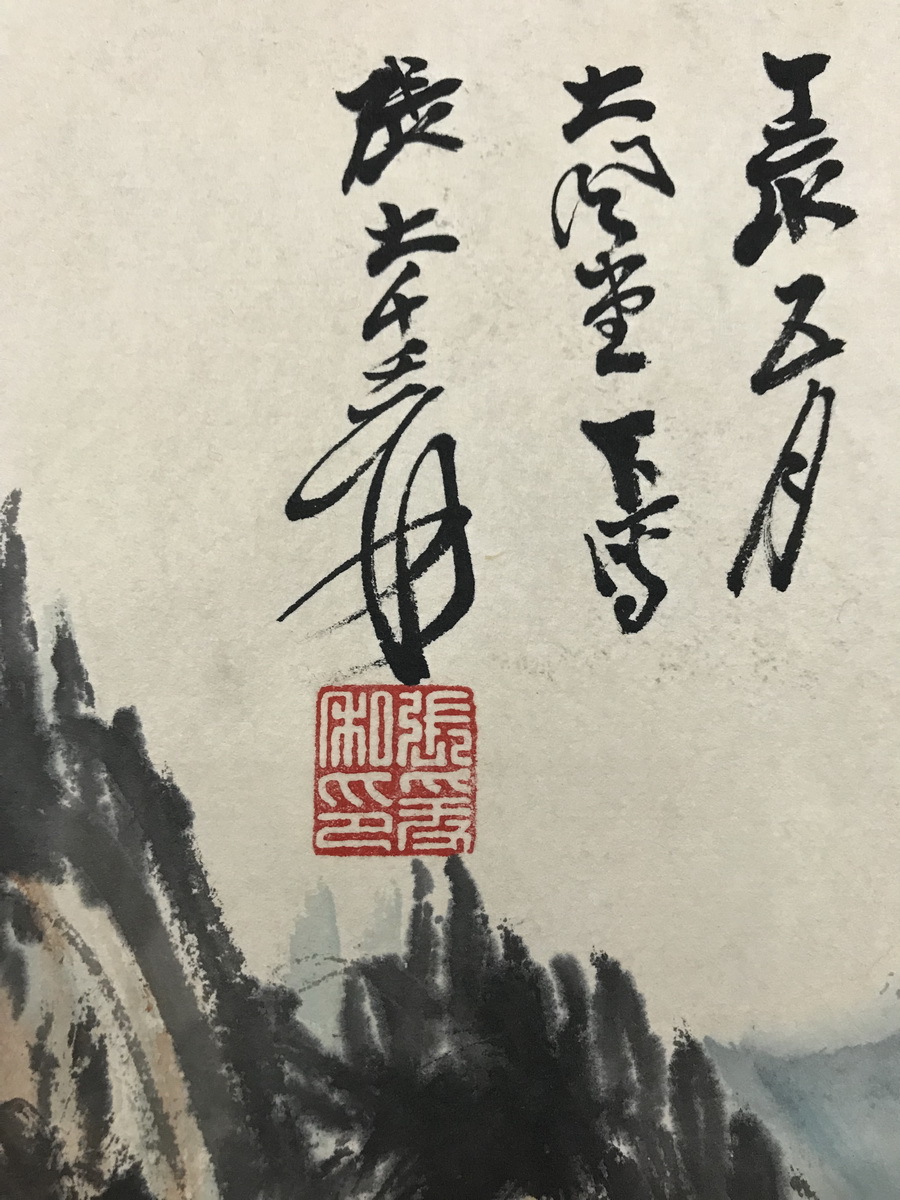 丁亥五月
大風堂下寫
張大千爰
張爰
私印